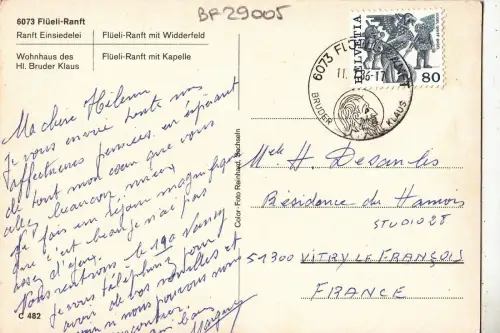 6073 Flüeli-Ranft
Ranft Einsiedelei
Flüeli-Ranft mit Widderfeld
Wohnhaus des
Hl. Bruder Klaus
Flüeli-Ranft mit Kapelle
BF29005
HELVETIA
80
6073 FLÜ
BRUDER KLAUS
Ma chère Hélène
Je vous envoie toute mes
affectueuses pensées, en espérant
de tout mon cœur que vous
allez beaucoup mieux
Je fais un séjour magnifique
que c'est beau je n'ai pas
assez d'yeux.
Nous rentrons le 19
Je vous téléphonerai pour
avoir de vos nouvelles et
si nous pouvons nous
rencontrer.
Color-Foto Reinhard, Sachseln
Melle H. Desanlis
Résidence du Hamois
STUDIO 28
51300 VITRY LE FRANÇOIS
FRANCE
C 482